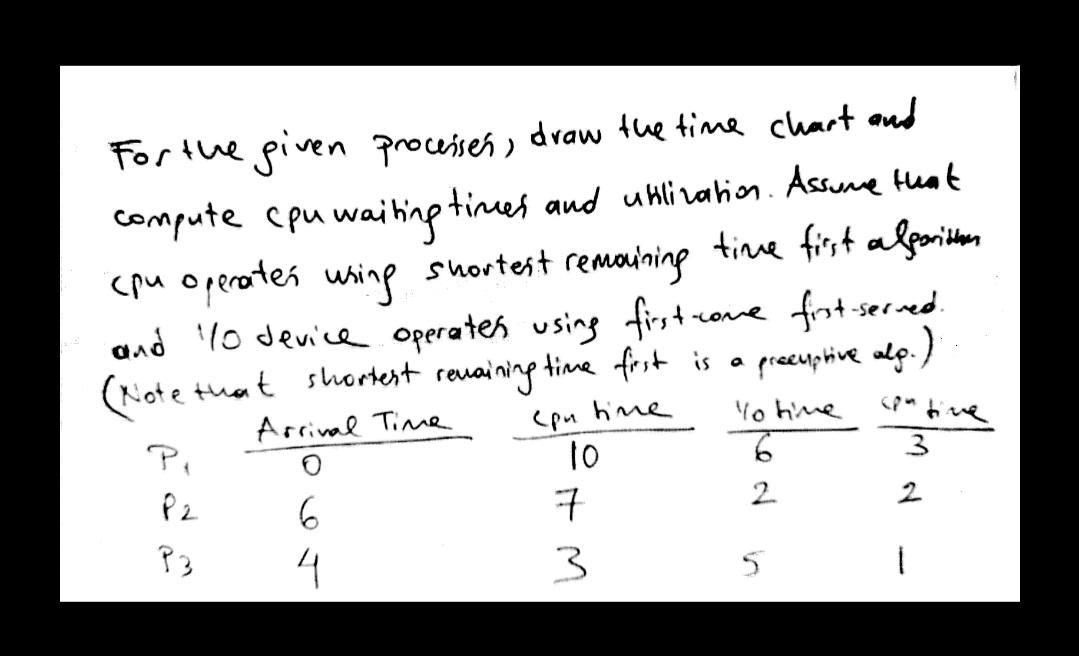 For the given processes, draw the time chart and
compute cpu waiting times and utilization. Assume that
cpu operates using shortest remaining time first algorithm
and I/O device operates using first-come first-served.
(Note that shortest remaining time first is a preemptive alg.)
Arrival Time cpu time I/O time cpu time
P1 0 10 6 3
P2 6 7 2 2
P3 4 3 5 1